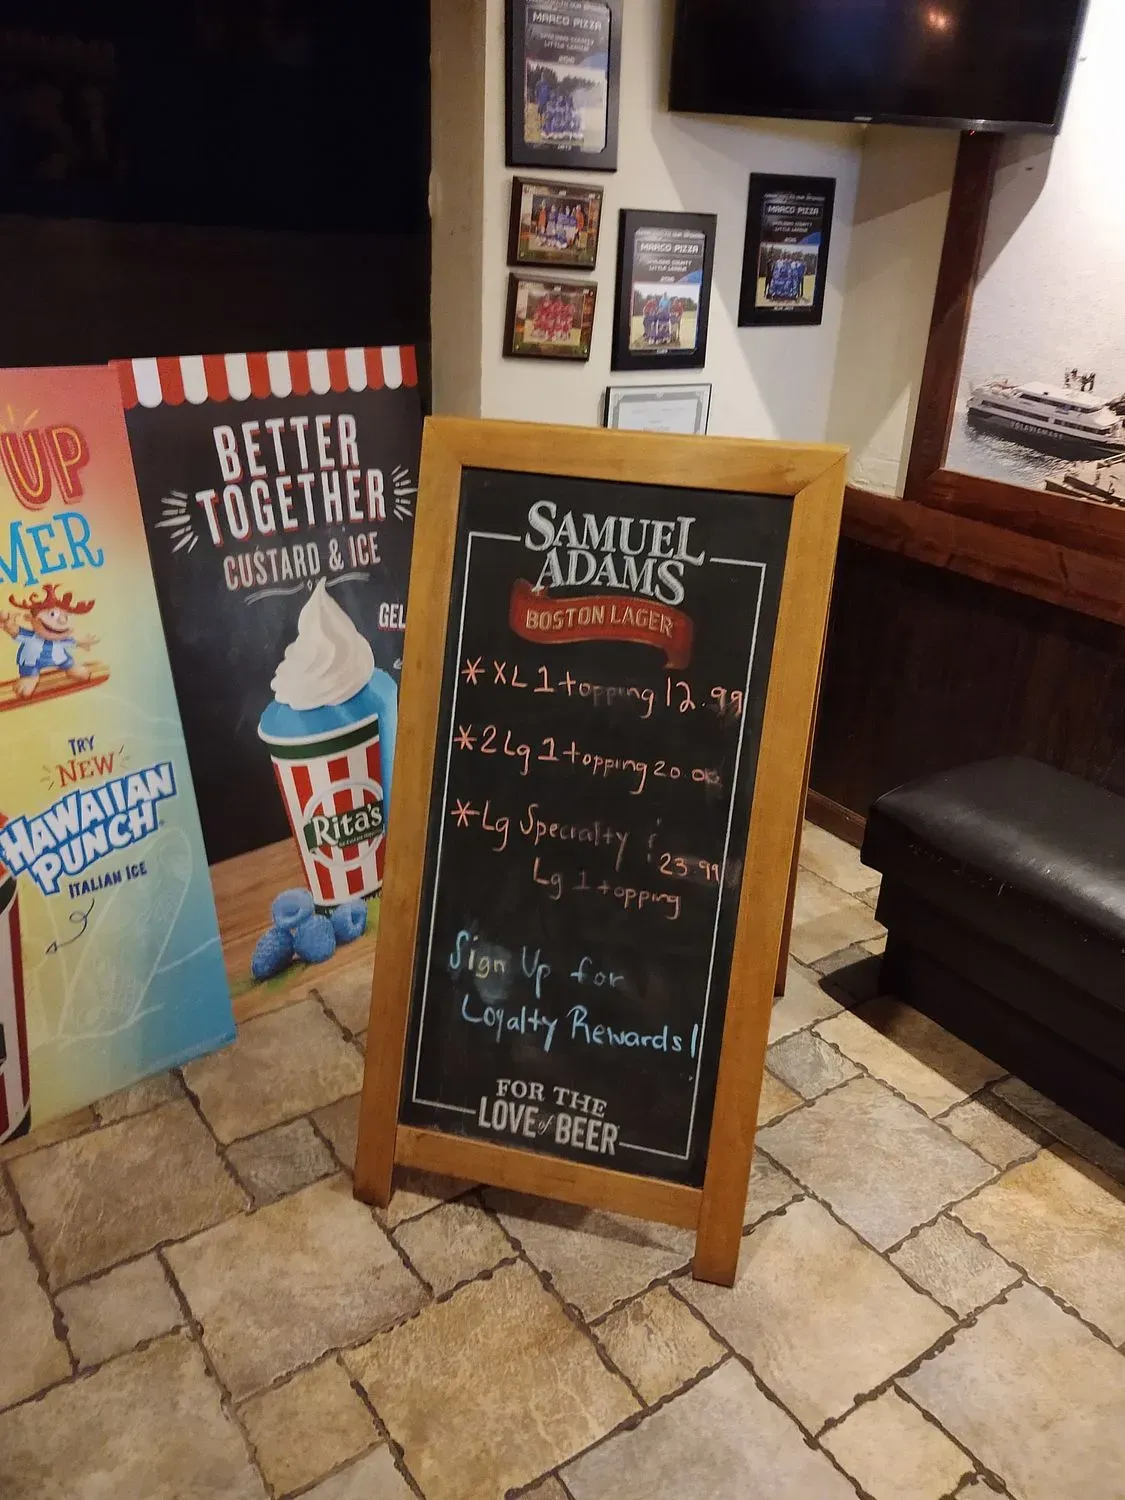 MARCO PIZZA
LITTLE LEAGUE
2016
MARCO PIZZA
LITTLE LEAGUE
2016
MARCO PIZZA
LITTLE LEAGUE
UP
MER
TRY
NEW
HAWAIIAN
PUNCH
ITALIAN ICE
BETTER
TOGETHER
CUSTARD & ICE
GEL
Rita's
SAMUEL
ADAMS
BOSTON LAGER
* XL 1 topping 12.99
* 2 Lg 1 topping 20.00
* Lg Specialty &
23.99
Lg 1 topping
Sign Up for
Loyalty Rewards!
FOR THE
LOVE of BEER